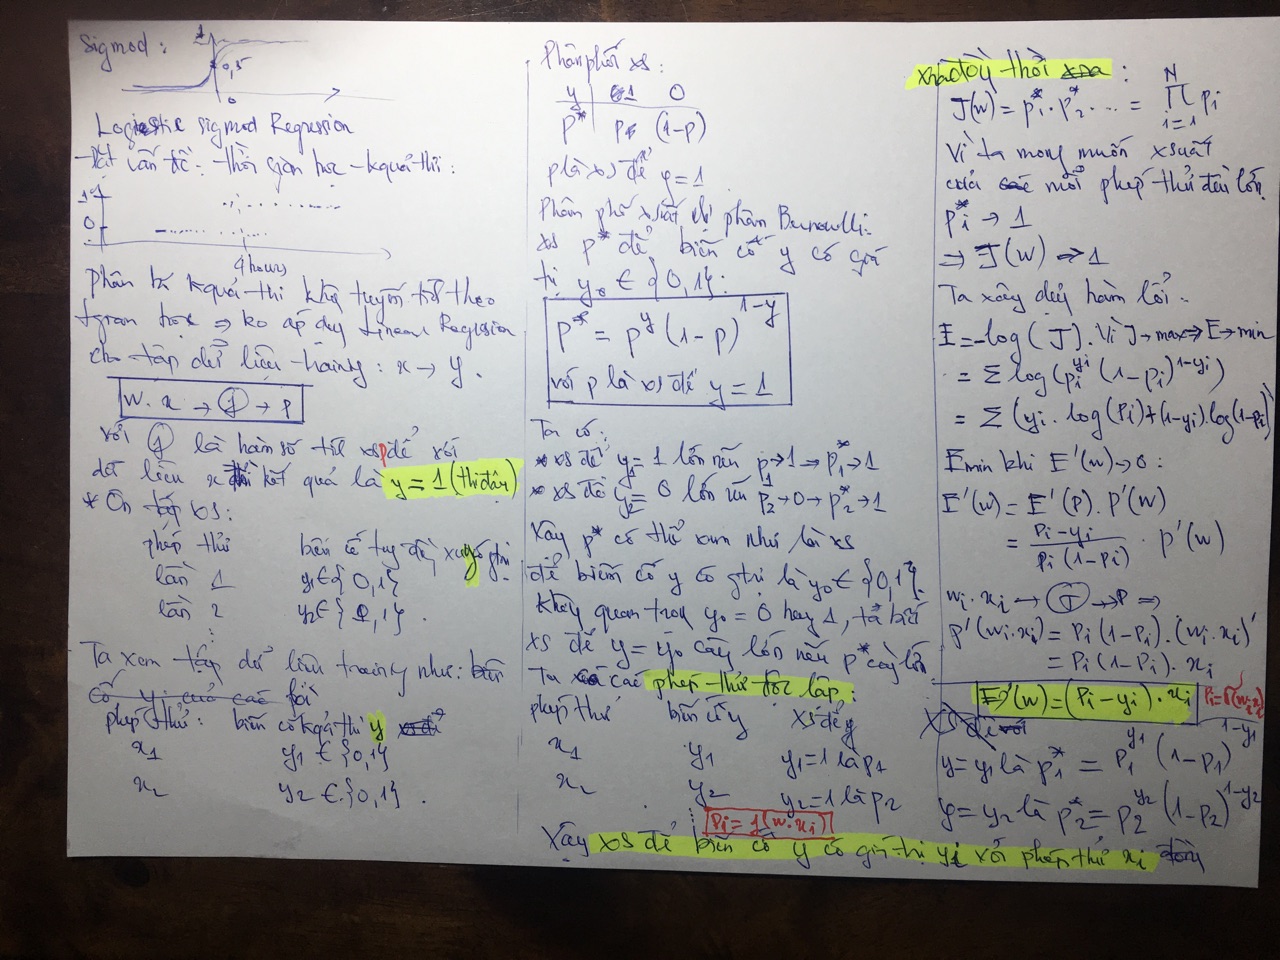 Sigmod :
1
0,5
0
Logistic sigmod Regression
- Đặt vấn đề: thời gian học - kquả thi :
1
0
4 hours
phân bố kquả thi khg tuyến tính theo
tgian học ⇒ ko áp dụng Linear Regression
cho tập dữ liệu traing : x → y .
w. x → f → p
với f là hàm số tính xs p để với
dữ liệu x thì kết quả là y = 1 (thi đậu)
* Ôn tập xs :
phép thử biến cố tuỳ đề xuất y gtrị
lần 1 y₁ ∈ { 0, 1}
lần 2 y₂ ∈ { 0, 1} .
Ta xem tập dữ liệu traing như : biến
cố yᵢ của các bởi
phép thử : biến cố kquả thi y
x₁ y₁ ∈ {0,1}
x₂ y₂ ∈ {0,1} .
Phân phối xs :
y 1 0
p* p (1-p)
p là xs để y = 1
Phân phối xsuất nhị phân Bernoulli :
xs p* để biến cố y có giá
trị y₀ ∈ { 0, 1} :
p* = p^y (1 - p)^(1-y)
với p là xs để y = 1
Ta có :
* xs để y₁ = 1 lớn nếu p₁→1 → p₁*→1
* xs để y₂ = 0 lớn nếu p₂→0 → p₂*→1
Vậy p* có thể xem như là xs
để biến cố y có gtrị là y₀ ∈ {0,1}.
Không quan trọng y₀ = 0 hay 1, ta biết
xs để y = y₀ càng lớn nếu p* càng lớn
Ta có các phép thử độc lập :
phép thử biến cố y xs để y
x₁ y₁ y₁=1 là p₁
x₂ y₂ y₂=1 là p₂
pᵢ = f(w.xᵢ)
Vậy xs để biến cố y có giá trị yᵢ với phép thử xᵢ đồng
xra đồng thời :
J(w) = p₁*. p₂*. ... = ∏ᵢ₌₁ᴺ pᵢ
Vì ta mong muốn xsuất
của các mỗi phép thử đều lớn
pᵢ* → 1
⇒ J(w) → 1
Ta xây dựng hàm lỗi :
E = -log ( J ). Vì J→max ⇒ E→min
= Σ log(pᵢ^yᵢ (1-pᵢ)^(1-yᵢ))
= Σ (yᵢ . log(pᵢ) + (1-yᵢ).log(1-pᵢ))
Emin khi E'(w) → 0 :
E'(w) = E'(p). p'(w)
= (pᵢ - yᵢ)/(pᵢ(1-pᵢ)) . p'(w)
wᵢ.xᵢ → f → p ⇒
p'(wᵢ.xᵢ) = pᵢ(1-pᵢ).(wᵢ.xᵢ)'
= pᵢ(1-pᵢ). xᵢ
E'(w) = (pᵢ - yᵢ) . xᵢ pᵢ=f(wᵢxᵢ)
y = y₁ là p₁* = p₁^y₁ (1-p₁)^(1-y₁)
y = y₂ là p₂* = p₂^y₂ (1-p₂)^(1-y₂)